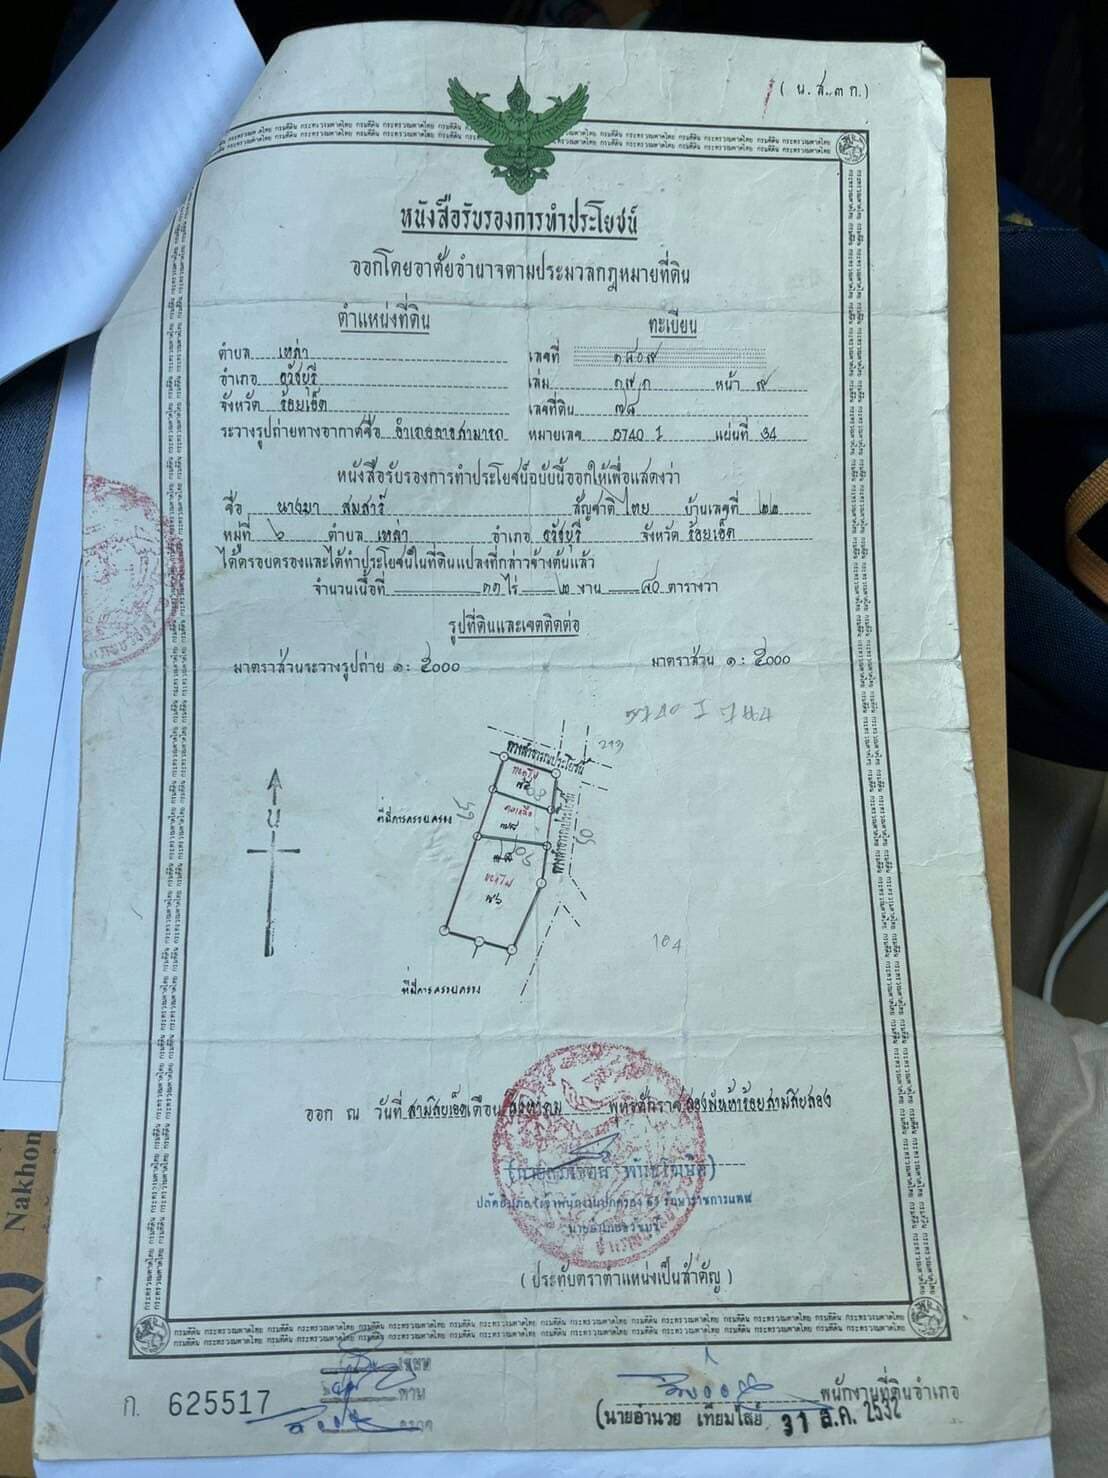 ( น.ส.๓ ก.)
หนังสือรับรองการทำประโยชน์
ออกโดยอาศัยอำนาจตามประมวลกฎหมายที่ดิน
ตำแหน่งที่ดิน
ทะเบียน
ตำบล เหล่า
เลขที่ ๑๘๐๙
อำเภอ ธวัชบุรี
เล่ม ๑๙ก หน้า ๙
จังหวัด ร้อยเอ็ด
เลขที่ดิน ๗๘
ระวางรูปถ่ายทางอากาศชื่อ อำเภออาจสามารถ หมายเลข 5740 I แผ่นที่ 34
หนังสือรับรองการทำประโยชน์ฉบับนี้ออกให้เพื่อแสดงว่า
ชื่อ นางมา สมสาร์ สัญชาติ ไทย บ้านเลขที่ ๒๒
หมู่ที่ ๖ ตำบล เหล่า อำเภอ ธวัชบุรี จังหวัด ร้อยเอ็ด
ได้ครอบครองและได้ทำประโยชน์ในที่ดินแปลงที่กล่าวข้างต้นแล้ว
จำนวนเนื้อที่ ๑๑ ไร่ ๒ งาน ๘๐ ตารางวา
รูปที่ดินและเขตติดต่อ
มาตราส่วนระวางรูปถ่าย ๑ : ๕๐๐๐
มาตราส่วน ๑ : ๕๐๐๐
ทางสาธารณประโยชน์
213
ที่มีการครอบครอง
คงเหลือ
๗๘
ทางสาธารณประโยชน์
๗๖
104
ที่มีการครอบครอง
ออก ณ วันที่ สามสิบเอ็ด เดือน สิงหาคม พุทธศักราช สองพันห้าร้อยสามสิบสอง
( ประทับตราตำแหน่งเป็นสำคัญ )
ก. 625517
เขียน
ทาน
ตรวจ
พนักงานที่ดินอำเภอ
(นายอำนวย เทียมไสย์
31 ส.ค. 2532
Nakhon